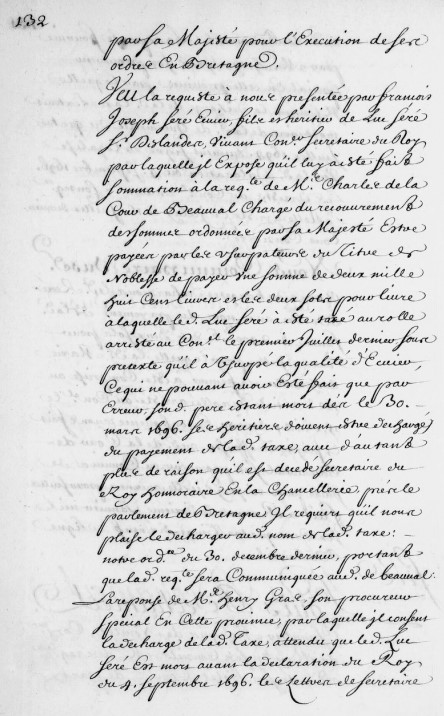 132
par Sa Majesté pour l'Execution de ses
ordres En Bretagne.
Veu la requiste à nous presentée par francois
Joseph Seré Ecuier, fils et heritier de Luc Seré
Sr. Deslandes, vivant Conr. Secretaire du Roy
par laquelle il Expose quil luy a esté fait
sommation à la reqte. de Me. Charles de la
Cour de Beauval Chargé du recouvrement
des sommes ordonnées par Sa Majesté Estre
payées par les Usurpateurs du titre de
Noblesse de payer une somme de deux mille
huit Cens livres et les deux sols pour livre
à laquelle led. Luc Seré a esté taxé au rolle
arresté au Conel. le premier Juillet dernier sous
pretexte quil à Usurpé la qualité d'Ecuier,
Ce qui ne pouvant avoir Esté fait que par
Erreur, sond. pere estant mort dés le 30.
mars 1696. ses heritiers doivent estre dechargés
du payement de lad. taxe, avec d'autant
plus de raison quil est decedé secretaire du
Roy honoraire En la Chancellerie prés le
parlement de Bretagne Il requiert quil nous
plaise le decharger aud. nom de lad. taxe:
notre ordce. du 30. decembre dernier, portant
que lad. reqte. sera Communiquée aud. de beauval:
La reponse de Me. Henry Gras, son procureur
special En Cette province, par laquelle jl consent
la decharge de lad. Taxe, attendu que led. Luc
Seré Est mort avant la declaration du Roy
du 4. septembre 1696. les Lettres de Secretaire